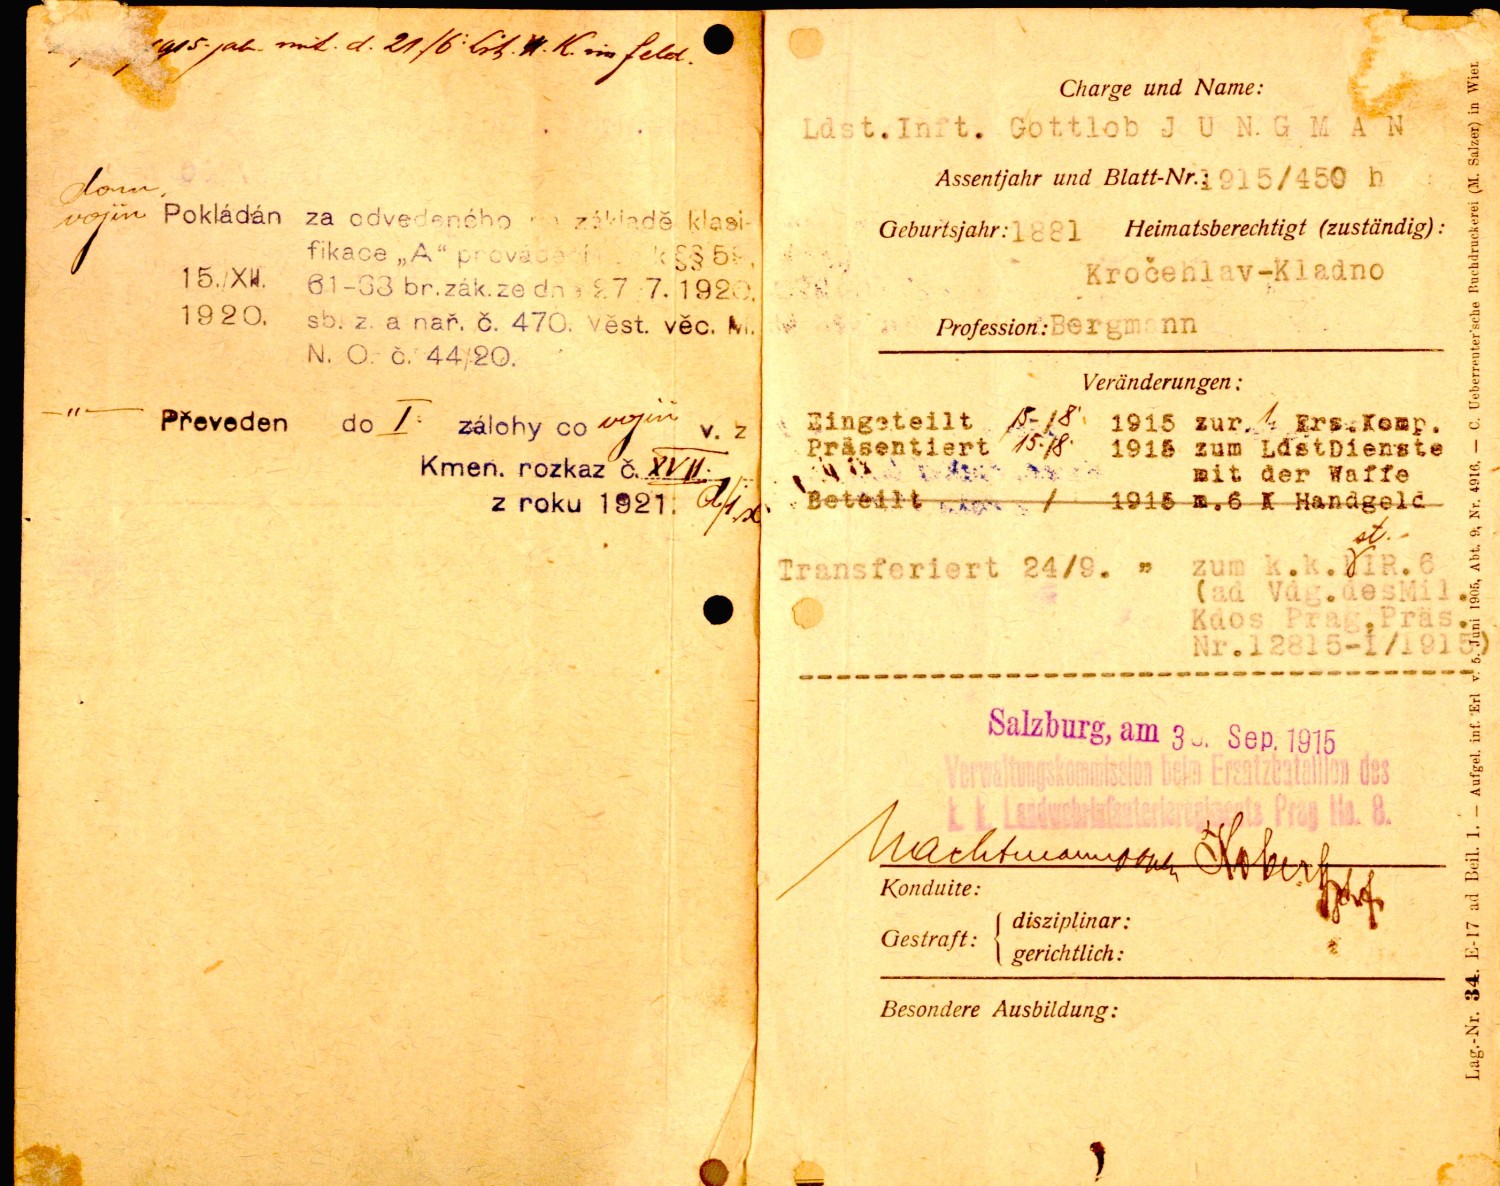 1915 jah. mit. d. 21/6 K. im feld.
dom.
vojín Pokládán za odvedeného na základě klasi-
fikace „A“ prováděcí k §§ 58,
15./XII. 61-63 br.zák.ze dne 27 7. 1920,
1920. sb. z. a nař. č. 470. Věst. věc. M.
N. O. č. 44/20.
—"— Převeden do I. zálohy co vojín v. z
Kmen. rozkaz č. XVII.
z roku 1921.
Charge und Name:
Ldst.Inft. Gottlob J U N G M A N
Assentjahr und Blatt-Nr.: 1915/450 h
Geburtsjahr: 1881 Heimatsberechtigt (zuständig):
Kročehlav-Kladno
Profession: Bergmann
Veränderungen:
Eingeteilt 15-/8 1915 zur. 1 Ers.Komp.
Präsentiert 15./8 1915 zum LdstDienste
mit der Waffe
Beteilt / 1915 m.6 K Handgeld
st.
Transferiert 24/9. " zum k.k. IR.6
(ad Vdg.desMil.
Kdos Prag,Präs.
Nr.12815-I/1915)
Salzburg, am 30. Sep. 1915
Verwaltungskommission beim Ersatzbataillon des
k. k. Landwehrinfanterieregiments Prag No. 8.
Konduite:
Gestraft: disziplinar:
gerichtlich:
Besondere Ausbildung:
Lag.-Nr. 34. E-17 ad Beil. 1. — Aufgel. inf. Erl v. 5. Juni 1905, Abt. 9, Nr. 4916. — C. Ueberreuter'sche Buchdruckerei (M. Salzer) in Wien.